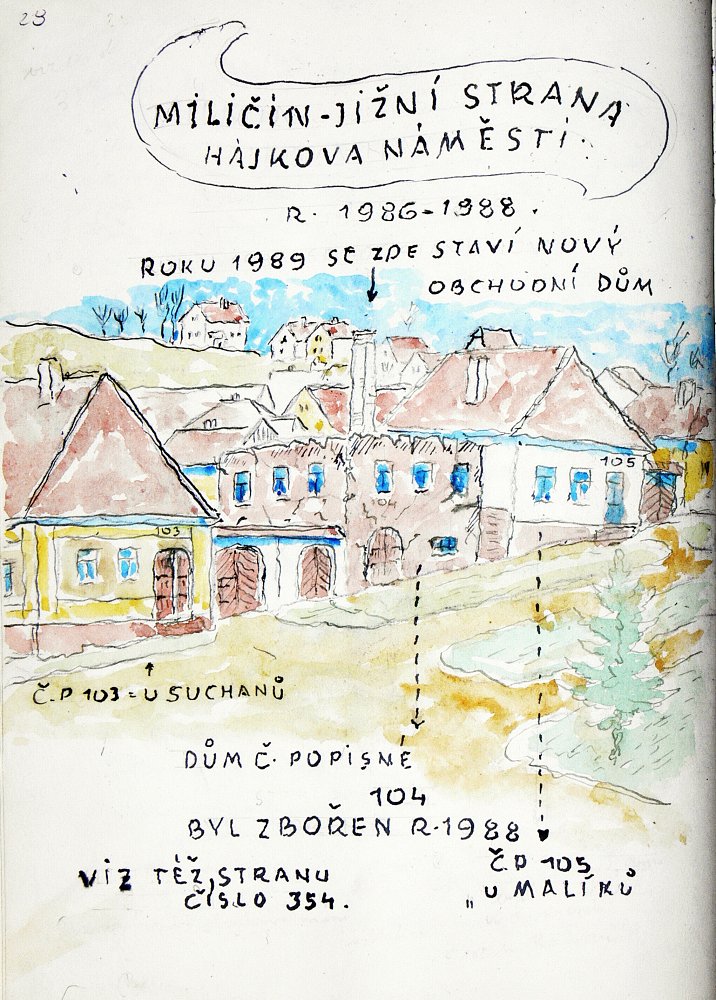 29
MILIČIN-JIŽNÍ STRANA
HÁJKOVA NÁMĚSTÍ.
R. 1986-1988.
ROKU 1989 SE ZDE STAVÍ NOVÝ
OBCHODNÍ DŮM
105
104
103
Č.P 103 = U SUCHANŮ
DŮM Č. POPISNÉ
104
BYL ZBOŘEN R. 1988
VIZ TÉŽ, STRANU
ČÍSLO 354.
ČP 105
„U MALÍKŮ